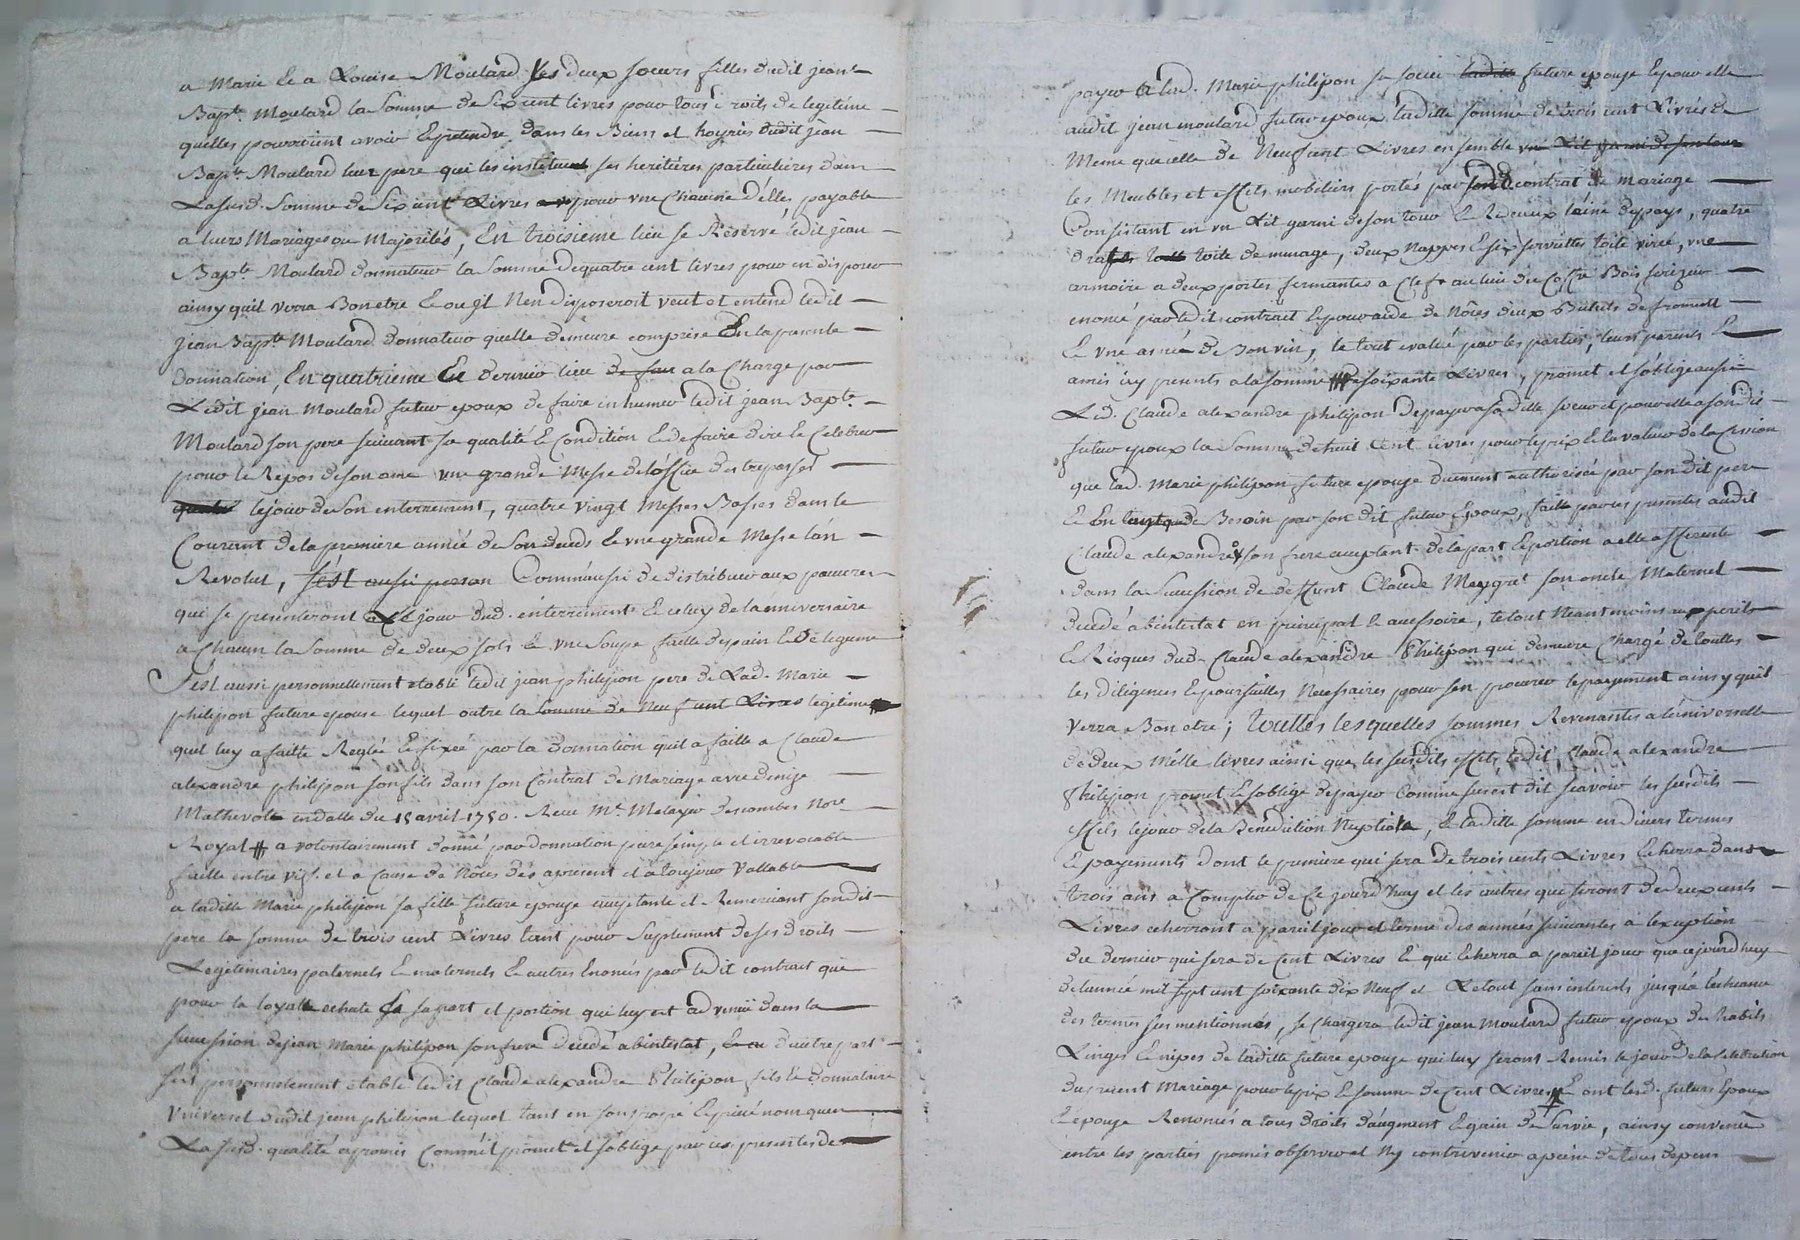 a Marie & a Louise Moulard les deux soeurs filles dudit jean
Bapt. Moulard la somme de six cent livres pour tous droits de legitime
quelles pourroient avoir & pretendre dans les Biens et hoyries dudit jean
Bapte Moulard leur pere qui les instituent ses heritieres particulieres dans
La susd. somme de six cent Livres pour une chacune d'elles payable
a leurs Mariages ou Majorités, En troisieme lieu se Réserve ledit jean
Bapte Moulard donnateur la somme de quatre cent livres pour en disposer
ainsy quil verra Bon etre & ou il N'en disposeroit veut et entend ledit
jean Bapte Moulard donnateur quelle demeure comprise En la presente
donnation, En quatrieme & dernier lieu de fair a la Charge par
Ledit jean Moulard futur epoux de faire inhumer ledit jean Bapte
Moulard son pere suivant sa qualité & Condition & de faire dire & Celebrer
pour le Repos de son ame une grande Messe de l'office des trepassés
le jour de son enterrement, quatre vingt Messes Basses dans le
Courant de la premiere année de son deceds & une grande Messe l'an
Revolut, s'est aussi person Comm'aussi de distribuer aux pauvres
qui se presenteront Le jour dud. enterrement & celuy de l'anniversaire
a Chacun la Somme de deux sols & une soupe faitte de pain & de legume
S'est aussi personnellement etabli ledit jean philipon pere de Lad. Marie
philipon future epouse lequel outre la somme de Neuf cent Livres legitime
quil luy a faitte Reglée & fixée par la donnation quil a faitte a Claude
alexandre philipon son fils dans son Contrat de Mariage avec denize
Mathevott en datte du 15 avril 1750. Recu Me. Metayer descombes Nore
Royal # a volontairement donné par donnation pure simple et irrevocable
faitte entre vifs. et a Cause de Nôces dés apresent et a toujours Vallable
a laditte Marie philipon sa fille future epouse acceptante et Remerciant sondit
pere la somme de trois cent Livres tant pour suplement de ses droits
Legitimaires paternels & maternels & autres Enoncés par ledit contrat que
pour la loyalle echute sa part et portion qui luy est advenüe dans la
succession de jean Marie philipon son frere decedé abintestat, d'autre part
s'est personnelement etabli ledit Claude alexandre Philipon fils & donnataire
Universel dudit jean philipon lequel tant en son propre & privé nom quen
La susd. qualité a promis Comm'il promet et s'oblige par ces presentes de
payer a lad. Marie philipon sa soeur laditte future epouse & pour elle
audit jean moulard futur epoux laditte somme de trois cent Livres de
Meme que celle de Neuf cent Livres ensemble un Lit garni de son tour
les Meubles et effets mobiliers portés par contrat de mariage
Consistant en un Lit garni de son tour & Rideaux laine du pays, quatre
draps toile de menage, deux Nappes & six serviettes toile virée, une
armoire a deux portes fermantes a Clefs au lieu du Coffre Bois serizier
enoncé par ledit contrait & pour aide de Nôces deux Bichets de froment
& une asnée de Bon vin, le tout evalué par les parties, leurs parents &
amis icy presents a la somme de soixante Livres, promet et s'oblige aussi
Led. Claude alexandre philipon de payer a saditte soeur et pour elle a son dit
futur epoux la somme de huit Cent livres pour le prix & la valeur de la Cession
que lad. Marie philipon future epouse duement authorisée par son dit pere
& En tant que de Besoin par son dit futur Epoux, faitt par ces presentes audit
Claude alexandre son frere acceptant de la part & portion a elle afferente
dans la Succession de deffunt Claude Maygret son oncle Maternel
decedé abintestat en principal & accessoire, le tout Neantmoins aux perils
& Risques dud. Claude alexandre Philipon qui demeure Chargé de touttes
les diligences & poursuittes Necessaires pour s'en procurer le payement ainsy quil
verra Bon etre; touttes lesquelles sommes Revenantes a l'universelle
de deux Mille livres ainsi que les susdits effets, ledit Claude alexandre
philipon promet & s'oblige de payer Comme sus est dit scavoir les susdits
effets le jour de la Benediction Nuptiale, & laditte somme en divers termes
& payements dont le premiere qui sera de trois cents Livres & cherra dans
trois ans a Compter de Ce jourd'huy et les autres qui seront de deux cents
Livres echerront a pareil jour et terme des années suivantes a l'exception
du dernier qui sera de Cent Livres & qui & cherra a pareil jour que cejourd'huy
de l'année mil sept cent soixante dix Neuf et Le tout sans interets jusqu'a l'echeance
des termes sus mentionnés, se chargera ledit jean Moulard futur epoux des habits
Linges & nipes de laditte future epouse qui luy seront Remis le jour de la Celebration
du present Mariage pour le prix & somme de Cent Livres # & ont lesd. futurs Epoux
& epouse Renoncés a tous Droits d'augment & gain de Survie, ainsy convenü
entre les parties promis observer et Ny contrevenir a peine de tous depens